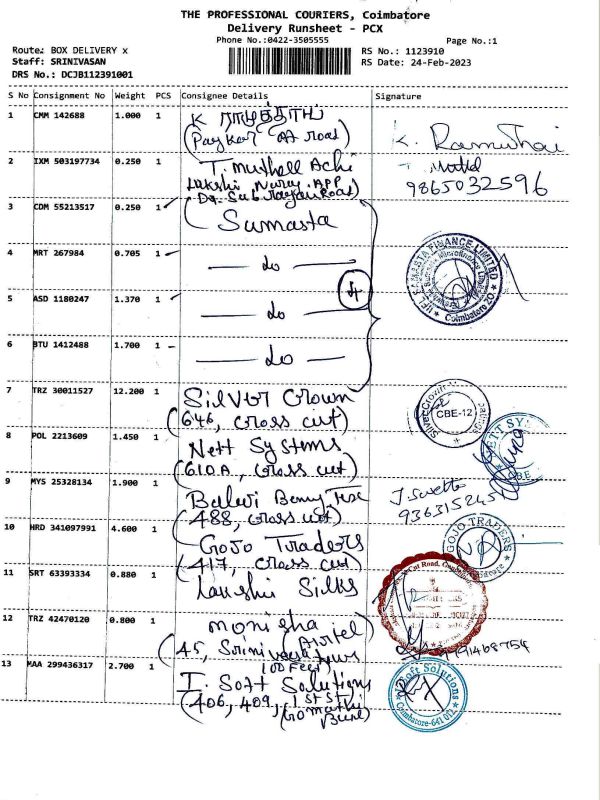 THE PROFESSIONAL COURIERS, Coimbatore
Delivery Runsheet - PCX
Phone No.:0422-3505555
Page No.:1
Route: BOX DELIVERY x
RS No.: 1123910
Staff: SRINIVASAN
RS Date: 24-Feb-2023
DRS No.: DCJB112391001
S No Consignment No Weight PCS Consignee Details Signature
1 CMM 142688 1.000 1 K ராமுத்தாய்
(Paykar AA road) K. Ramuthai
2 IXM 503197734 0.250 1 T. muthall Achi
9865032596
3 CDM 55213517 0.250 1 Samasta
4 MRT 267984 0.705 1 — do —
SAMASTA FINANCE LIMITED
Coimbatore ZO
4
5 ASD 1180247 1.370 1 — do —
6 BTU 1412488 1.700 1 — do —
7 TRZ 30011527 12.200 1 Silver Crown
(646, cross cut)
CBE-12
8 POL 2213609 1.450 1 Nett Systems
(610A, cross cut)
NETT SY
CBE
9 MYS 25328134 1.900 1
(488, cross cut)
10 HRD 341097991 4.600 1 Gojo Traders
(417, cross cut)
GOJO TRADERS
11 SRT 63393334 0.880 1 Lakshi Silks
12 TRZ 42470120 0.800 1 monisha
(Airtel)
(100 Feet)
13 MAA 299436317 2.700 1 I. Soft Solutions
(406, 409, 1st St)
Soft Solutions
Coimbatore-641 012